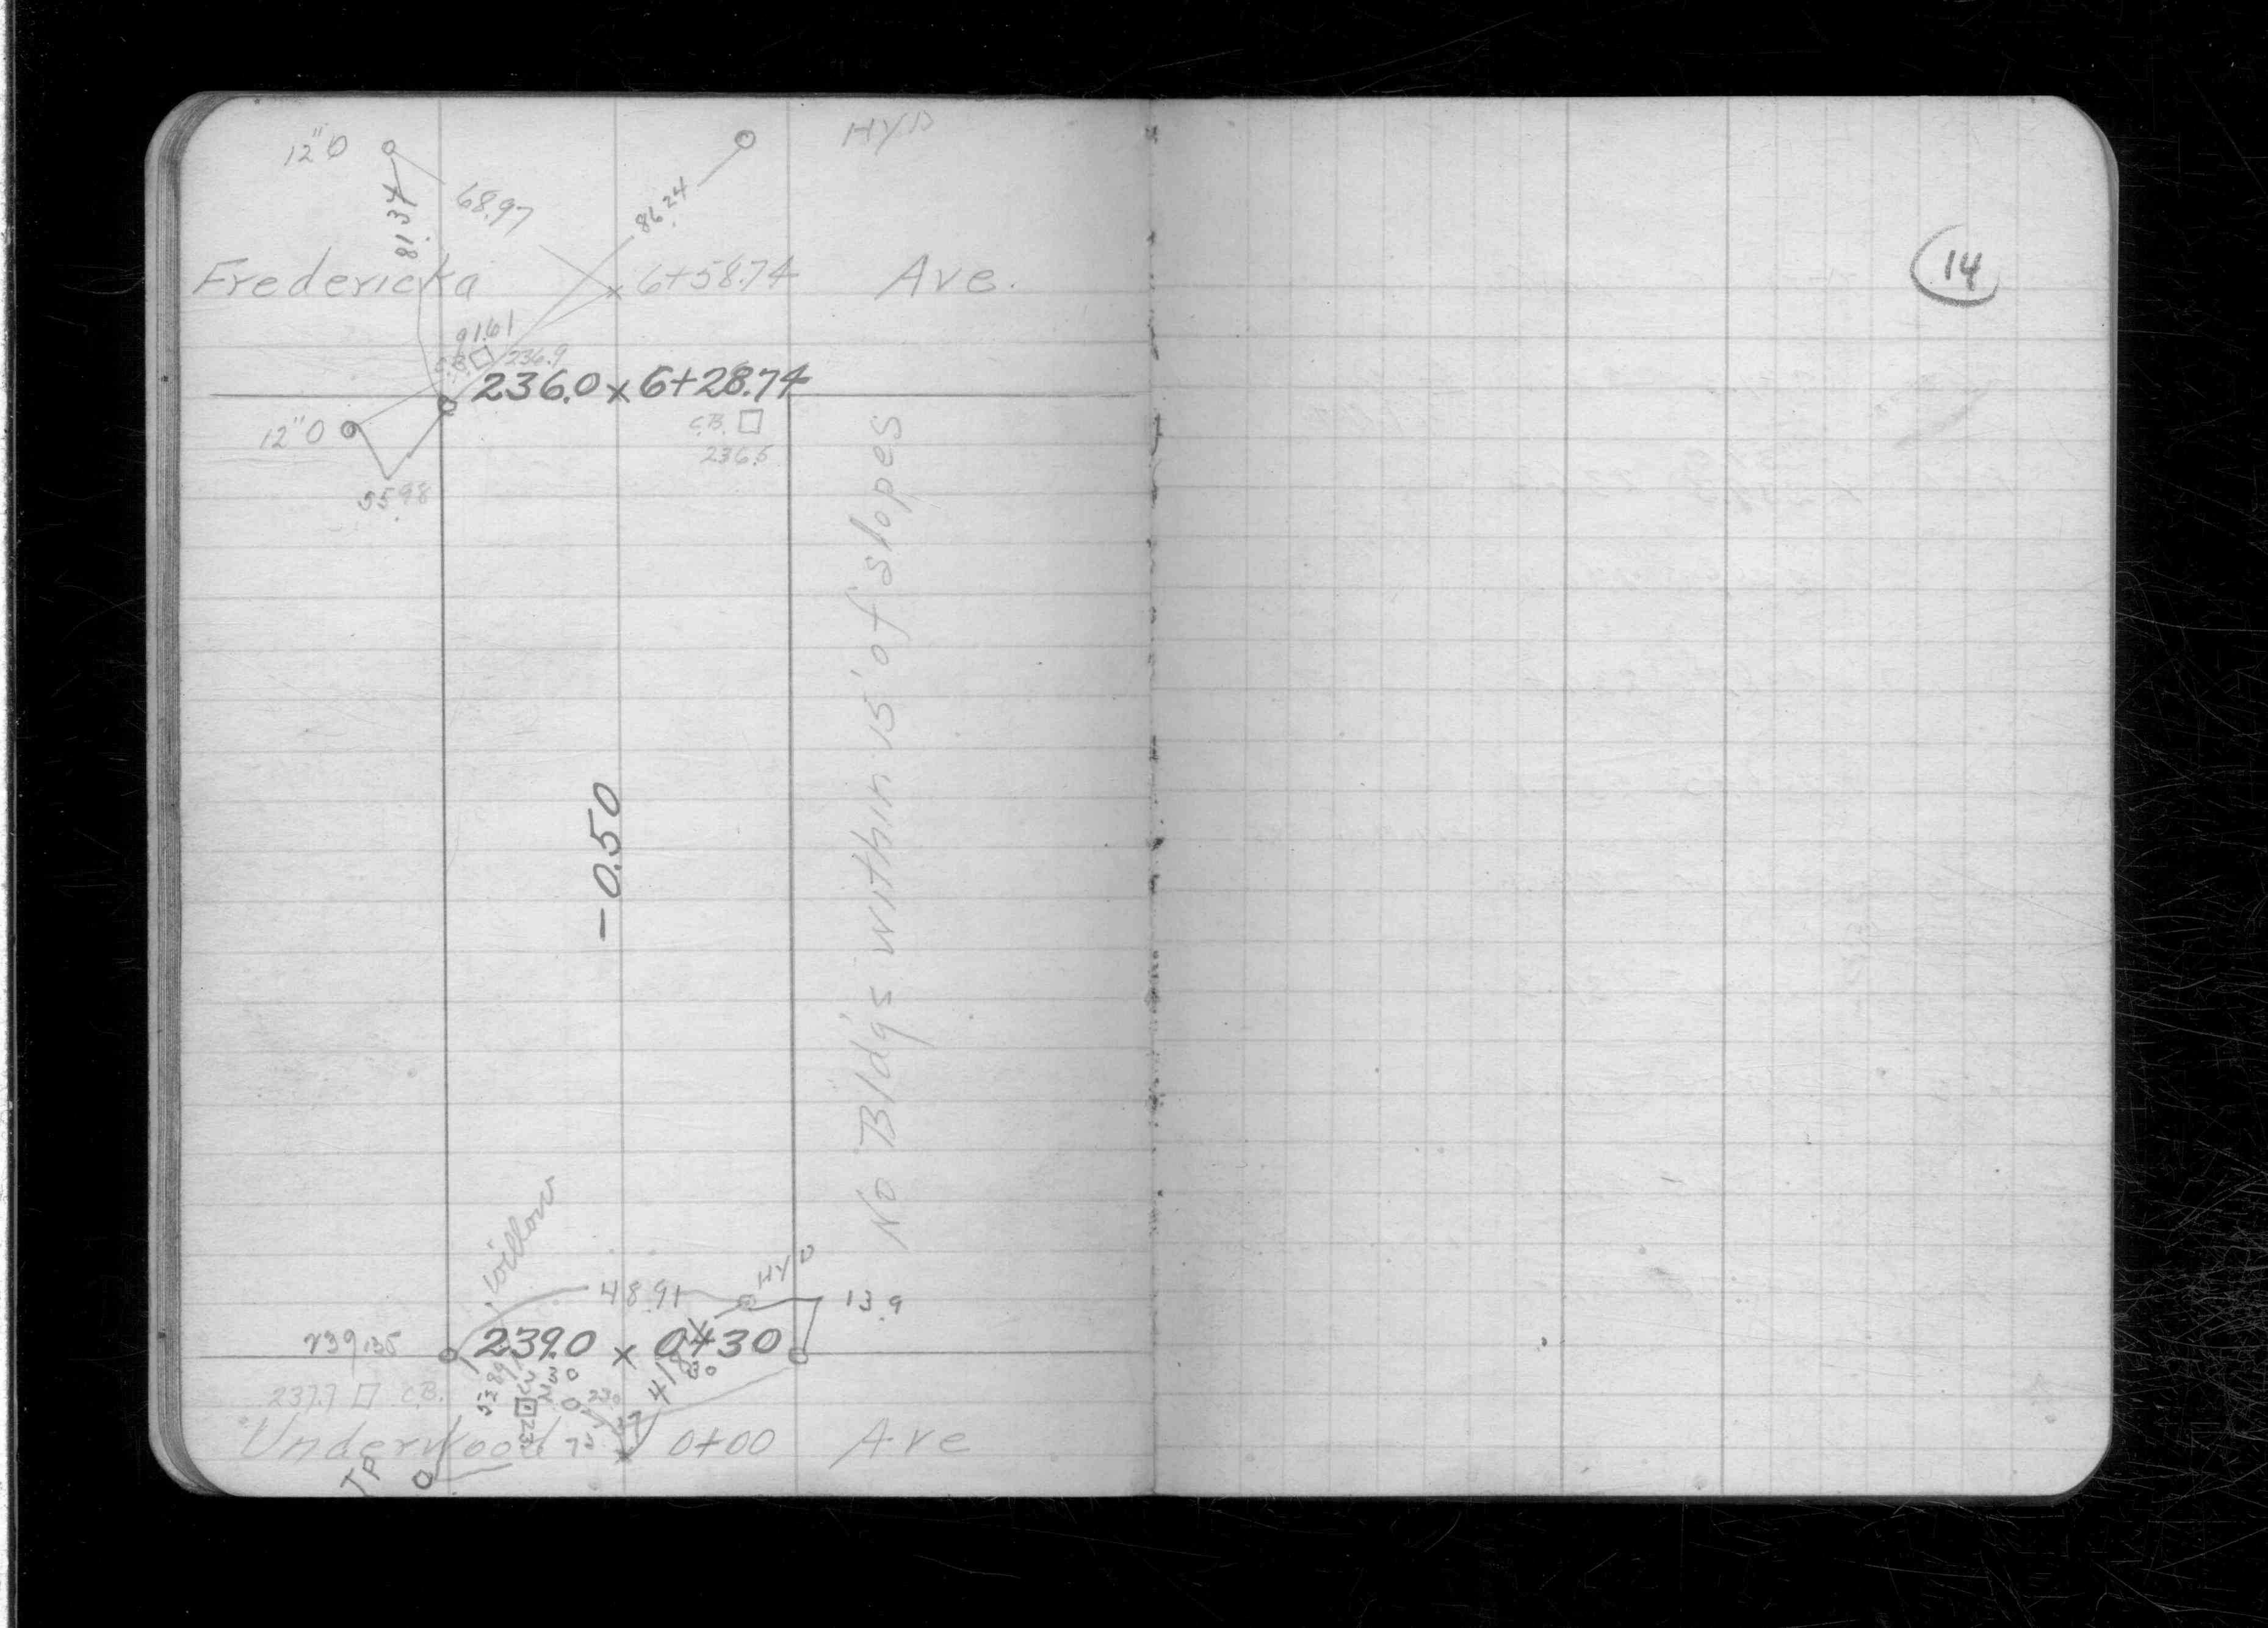 12"O HYD
81.37 68.97 86.24
Fredericka 6+58.74 Ave.
14
91.61
C.B. 236.9
236.0 x 6+28.74
12"O C.B.
236.5
55.98
No Bld'gs within 15' of slopes
-0.50
Willow
HYD
48.91 13.9
239.0 x 0+30
237.7 C.B.
Underwood 0+00 Ave
TP